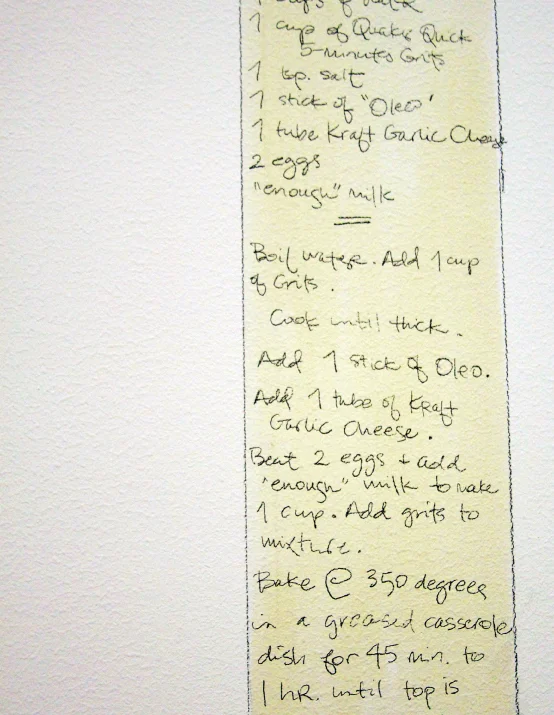 1 cup of Quaker Quick
5-minutes Grits
1 tsp. salt
1 stick of "Oleo"
1 tube Kraft Garlic Cheese
2 eggs
"enough" milk
Boil water. Add 1 cup
of Grits.
Cook until thick.
Add 1 stick of Oleo.
Add 1 tube of Kraft
Garlic Cheese.
Beat 2 eggs + add
"enough" milk to make
1 cup. Add grits to
mixture.
Bake @ 350 degrees
in a greased casserole
dish for 45 min. to
1 hr. until top is